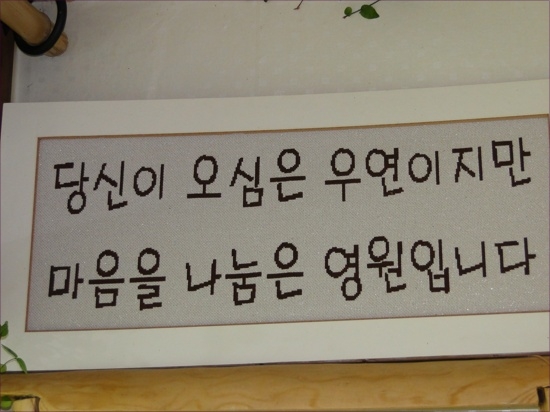 당신이 오심은 우연이지만
마음을 나눔은 영원입니다